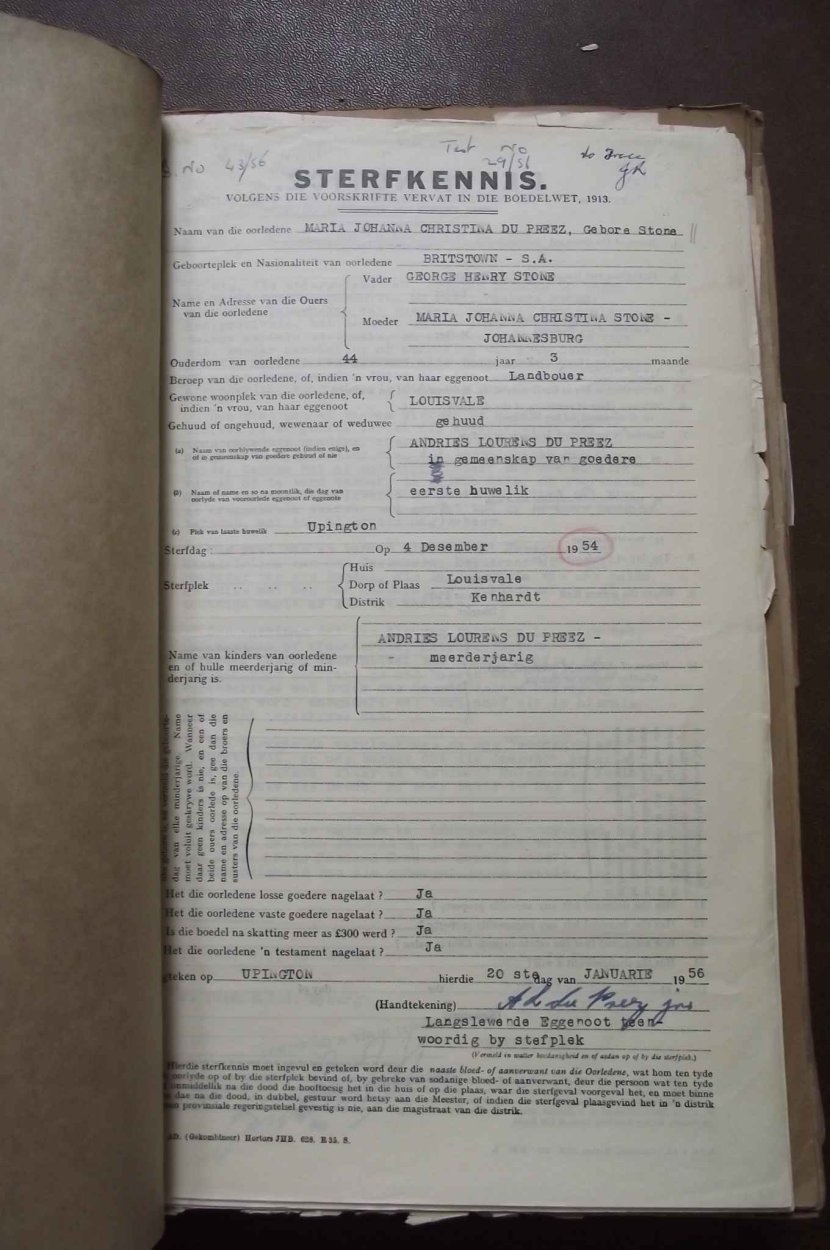 No 43/56
Test No
29/56
to Trace
STERFKENNIS.
VOLGENS DIE VOORSKRIFTE VERVAT IN DIE BOEDELWET, 1913.
Naam van die oorledene MARIA JOHANNA CHRISTINA DU PREEZ, Gebore Stone
Geboorteplek en Nasionaliteit van oorledene BRITSTOWN - S.A.
Name en Adresse van die Ouers van die oorledene
Vader GEORGE HENRY STONE
Moeder MARIA JOHANNA CHRISTINA STONE -
JOHANNESBURG
Ouderdom van oorledene 44 jaar 3 maande
Beroep van die oorledene, of, indien 'n vrou, van haar eggenoot Landbouer
Gewone woonplek van die oorledene, of,
indien 'n vrou, van haar eggenoot LOUISVALE
Gehuud of ongehuud, wewenaar of weduwee gehuud
(a) Naam van oorblywende eggenoot (indien enige), en
of in gemeenskap van goedere gehuud of nie
ANDRIES LOURENS DU PREEZ
in gemeenskap van goedere
(b) Naam of name en so na moontlik, die dag van
oorlyde van vooroorlede eggenoot of eggenote
eerste huwelik
(c) Plek van laaste huwelik Upington
Sterfdag : Op 4 Desember 19 54
Sterfplek .. .. ..
Huis
Dorp of Plaas Louisvale
Distrik Kenhardt
Name van kinders van oorledene
en of hulle meerderjarig of min-
derjarig is.
ANDRIES LOURENS DU PREEZ -
- meerderjarig
dag van elke minderjarige. Name
moet voluit geskrywe word. Wanneer
daar geen kinders is nie, en een of
beide ouers oorlede is, gee dan die
name en adresse op van die broers en
susters van die oorledene.
Het die oorledene losse goedere nagelaat ? Ja
Het die oorledene vaste goedere nagelaat ? Ja
Is die boedel na skatting meer as £300 werd ? Ja
Het die oorledene 'n testament nagelaat ? Ja
geteken op UPINGTON hierdie 20 ste dag van JANUARIE 19 56
(Handtekening) A L du Preez jnr
Langslewende Eggenoot teen-
woordig by stefplek
(Vermeld in watter hoedanigheid en of aldan op of by die sterfplek.)
Hierdie sterfkennis moet ingevul en geteken word deur die naaste bloed- of aanverwant van die Oorledene, wat hom ten tyde
oorlyde op of by die sterfplek bevind of, by gebreke van sodanige bloed- of aanverwant, deur die persoon wat ten tyde
onmiddellik na die dood die hooftoesig het in die huis of op die plaas, waar die sterfgeval voorgeval het, en moet binne
dae na die dood, in dubbel, gestuur word hetsy aan die Meester, of indien die sterfgeval plaasgevind het in 'n distrik
provinsiale regeringstelsel gevestig is nie, aan die magistraat van die distrik.
(Gekombineer) Hortors JHB. 628. B 35. S.